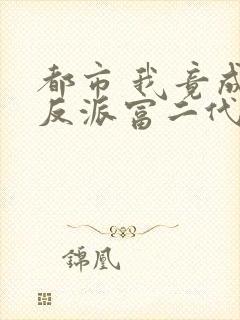 都市我竟成
反派富二代
錦凰